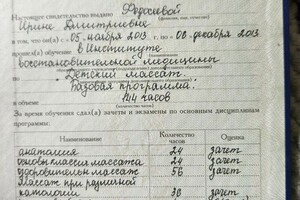 Настоящее свидетельство выдано Федосеевой
(фамилия, имя, отчество)
Ирине Дмитриевне
в том, что он(а) с 05 ноября 2013 г. по 08 декабря 2013
прошел(а) обучение в Институте
восстановительной медицины
по Детский массаж.
Базовая программа.
в объеме 144 часов
За время обучения сдал(а) зачеты и экзамены по основным дисциплинам
программы:
Наименование Количество часов Оценка
анатомия 24 зачет
основы классич массажа 24 зачет
оздоровительн массаж 56 зачет
массаж при различной
патологии 38 зачет